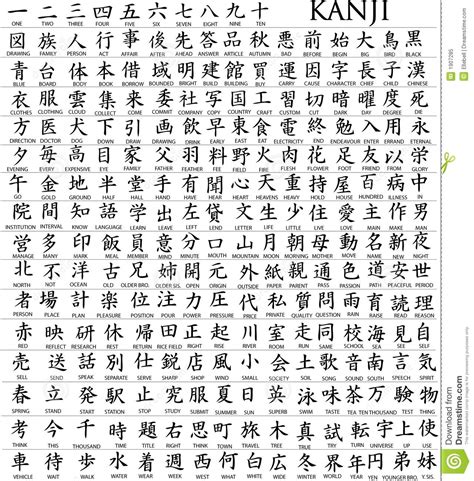 一 二 三 四 五 六 七 八 九 十 KANJI
ONE TWO THREE FOUR FIVE SIX SEVEN EIGHT NINE TEN
図 族 人 行 事 後 先 答 品 秋 悪 前 始 大 鳥 黒
DRAWING FAMILY PERSON ACT AFFAIR AFTER AHEAD ANSWER ARTICLE AUTUMN BAD BEFORE BEGIN BIG BIRD BLACK
青 台 体 本 借 域 明 建 館 買 運 因 字 長 子 漢
BLUE BOARD BODY BOOK BORROW BOUNDED BRIGHT BUILD BUILDING BUY CARRY CAUSE CHARACTER CHIEF CHILD CHINESE
衣 服 雲 集 来 写 国 工 習 切 暗 曜 度 死
CLOTHES CLOTHING CLOUD COLLECT COME COPY COUNTRY CRAFT CUSTOM CUT DARK DAY DEGREE DIE
方 医 犬 下 引 画 飲 早 食 電 終 勉 入 用 永
DIRECTION DOCTOR DOG DOWN DRAW DRAWING DRINK EARLY EAT ELECTRICITY END ENDEAVOUR ENTER ERRAND ETERNAL
夕 毎 高 目 家 父 羽 料 野 火 花 足 友 以 栄
EVENING EVERY EYE FAMILY FATHER FEATHER FIRE FLOWER FOOT FRIEND FROM
午 金 地 半 堂 手 有 聞 心 天 重 持 屋 百 病 中
GO GOLD GROUND HALF HALL HAND HAVE HEAR HEART HEAVEN HEAVY HOLD HOUSE HUNDRED ILLNESS IN
院 間 知 語 学 出 左 貸 文 生 少 住 愛 主 作 男
INSTITUTION INTERVAL KNOW LANGUAGE LEARN LEAVE LEFT LEND LETTER LIFE LITTLE LIVE LOVE MAIN MAKE MAN
営 多 印 飯 員 意 分 月 山 朝 母 動 名 新 夜
MANAGE MANY MARK MEAL MEMBER MIND MINUTE MOON MOUNTAIN MORNING MOTHER MOVE NAME NEW NIGHT
北 不 洋 古 兄 姉 開 元 外 紙 親 通 色 道 安 世
NORTH NOT OCEAN OLD OLDER BRO. OLDER SIS. OPEN ORIGIN OUTSIDE PAPER PARENT PASS PASSION PATH PEACEFUL PERIOD
者 場 計 楽 位 注 力 圧 代 私 質 問 雨 育 読 理
PERSON PLACE PLAN PLEASURE POSITION POUR POWER PRICE PRIVATE QUALITY QUESTION RAIN RAISE READ REASON
赤 映 研 休 帰 田 正 起 川 室 走 同 校 海 見 自
RED REFLECT RESEARCH REST RETURN RIGHT RISE RIVER ROOM RUN SAME SCHOOL SEA SEE SELF
売 送 話 別 仕 店 風 小 会 土 歌 音 南 言 気
SELL SEND SPEAK SEPARATE SERVE SHARP SHOP SMALL SOCIETY SOIL SONG SOUND SOUTH SPEECH SPIRIT
春 立 発 駅 止 究 夏 日 茶 万 験 物
SPRING STAND START STATION STOP STUDY SUMMER SUN SUPERB SWIM TASTE TEA TEN THOUSAND TEST THING
考 今 千 時 題 右 思 町 旅 木 真 試 転 宇 上 使
THINK THIS THOUSAND TIME TITLE RIGHT THINK TOWN TRAVEL TREE TRUE TRY TURN UNIVERSE UP USE
車 待 歩 水 着 週 西 何 白 広 冬 界 年 円 弟 妹
VEHICLE WAIT WALK WATER WEAR WEEK WEST WHAT WHITE WIDE WINTER WORLD YEAR YEN YOUNGER BRO. YOUNGER SIS.
Download from
Dreamstime.com